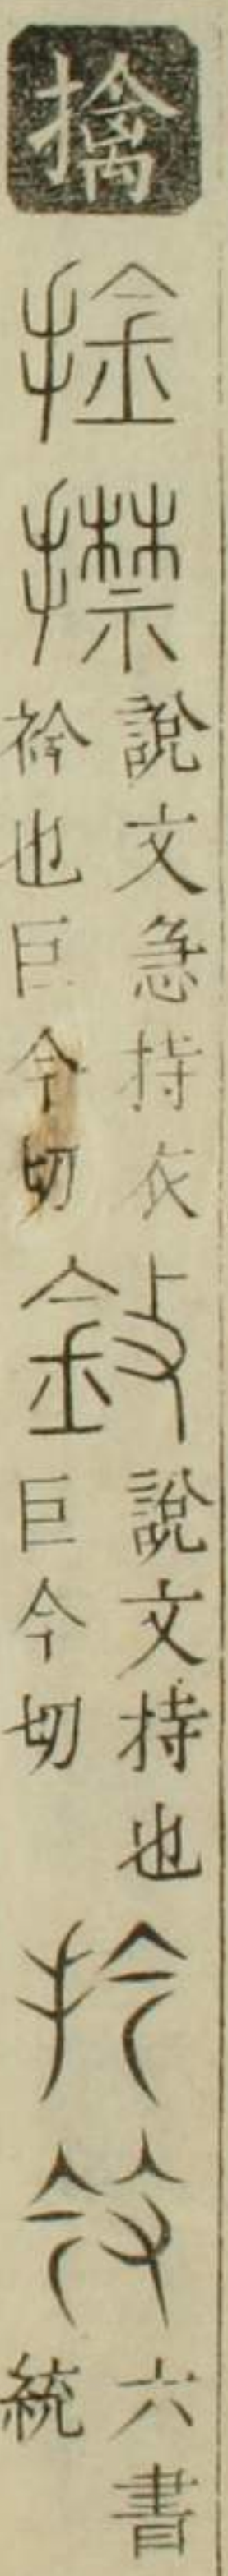 擒
捦
㩒
說文急持衣
衿也巨今切
㪁
說文持也
巨今切
扲
六書
統